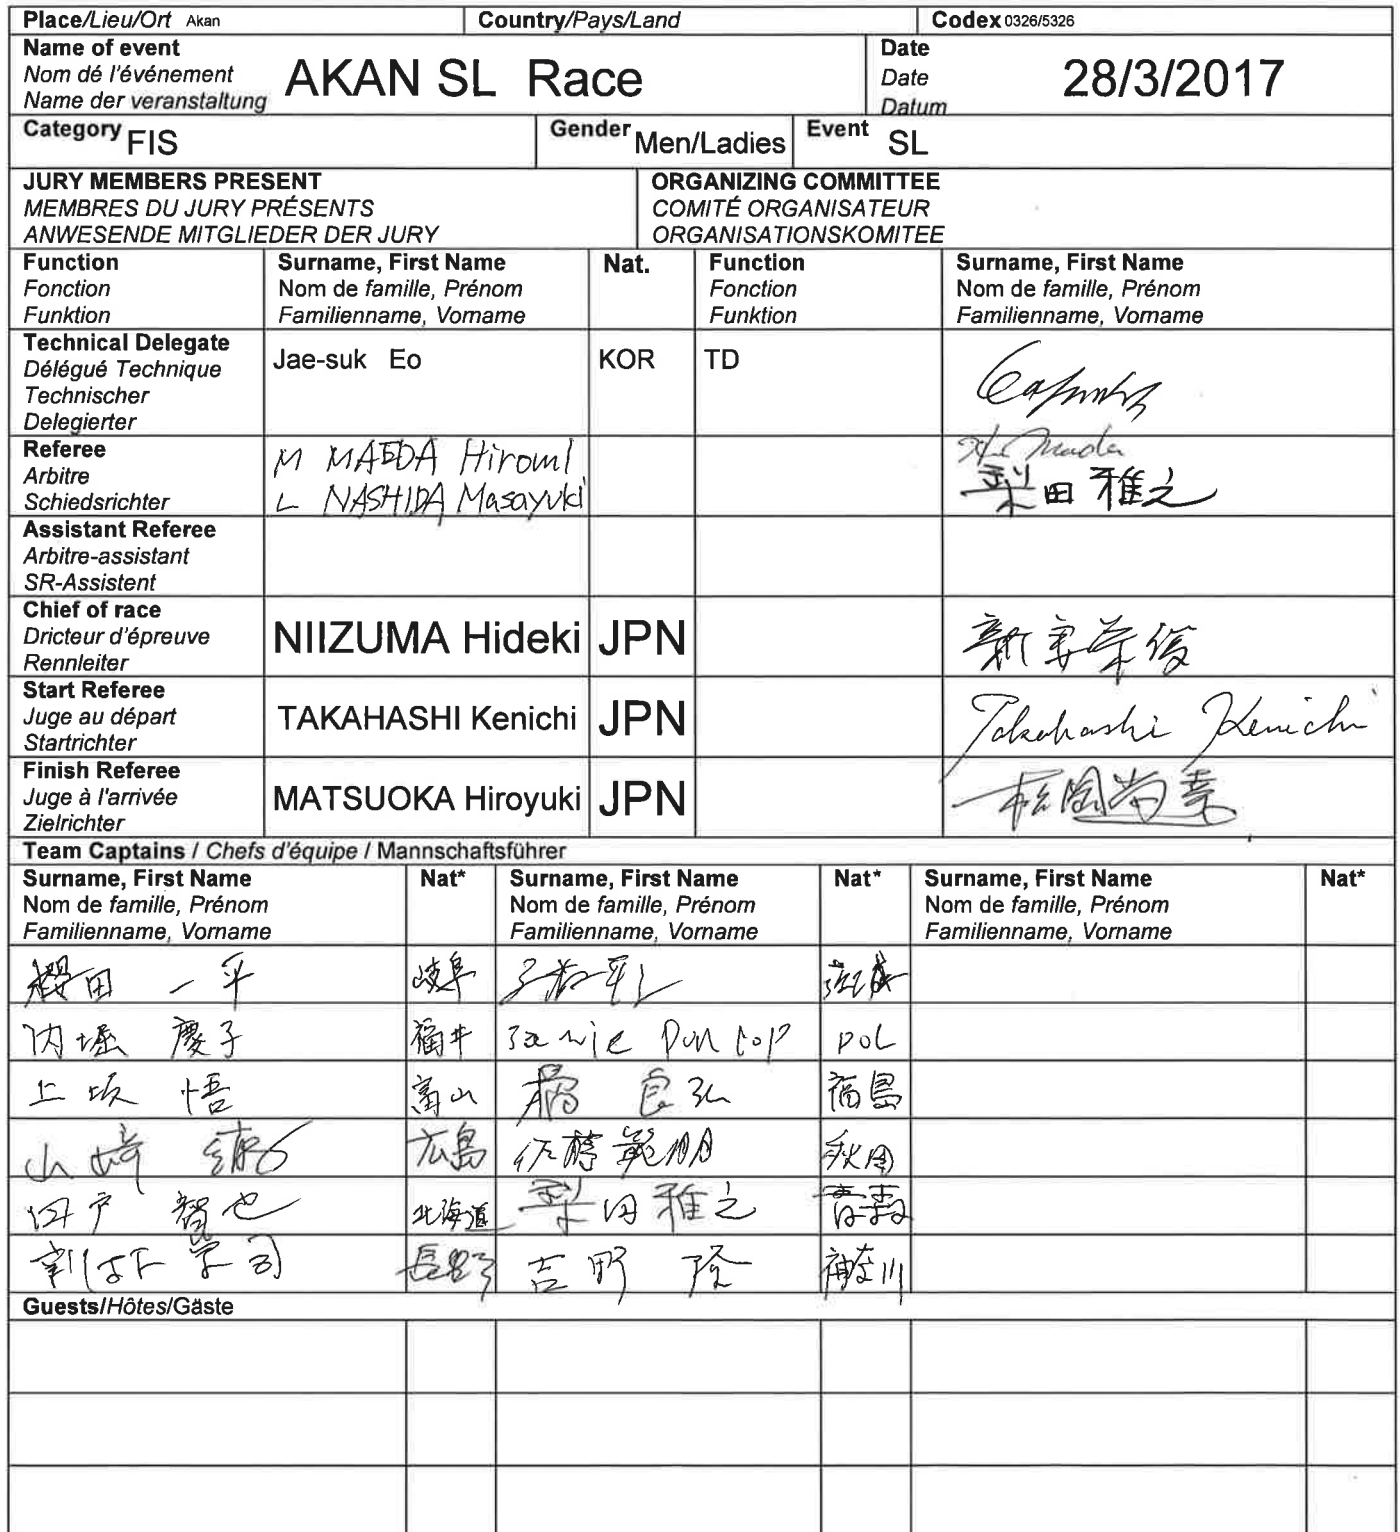 Place/Lieu/Ort Akan Country/Pays/Land Codex 0326/5326
Name of event
Nom dé l'événement
Name der veranstaltung
AKAN SL Race
Date
Date
Datum
28/3/2017
Category FIS Gender Men/Ladies Event SL
JURY MEMBERS PRESENT
MEMBRES DU JURY PRÉSENTS
ANWESENDE MITGLIEDER DER JURY
ORGANIZING COMMITTEE
COMITÉ ORGANISATEUR
ORGANISATIONSKOMITEE
Function
Fonction
Funktion
Surname, First Name
Nom de famille, Prénom
Familienname, Vorname
Nat.
Function
Fonction
Funktion
Surname, First Name
Nom de famille, Prénom
Familienname, Vorname
Technical Delegate
Délégué Technique
Technischer
Delegierter
Jae-suk Eo KOR TD
Referee
Arbitre
Schiedsrichter
M MAEDA Hiromi
L NASHIDA Masayuki
Maeda
梨田雅之
Assistant Referee
Arbitre-assistant
SR-Assistent
Chief of race
Dricteur d'épreuve
Rennleiter
NIIZUMA Hideki JPN
新妻栄俊
Start Referee
Juge au départ
Startrichter
TAKAHASHI Kenichi JPN
Takahashi Kenichi
Finish Referee
Juge à l'arrivée
Zielrichter
MATSUOKA Hiroyuki JPN
松岡尚幸
Team Captains / Chefs d'équipe / Mannschaftsführer
Surname, First Name
Nom de famille, Prénom
Familienname, Vorname
Nat*
Surname, First Name
Nom de famille, Prénom
Familienname, Vorname
Nat*
Surname, First Name
Nom de famille, Prénom
Familienname, Vorname
Nat*
櫻田 一平 岐阜
内堀 慶子 福井 POL
上坂 悟 富山 良弘 福島
山崎 広島 佐藤範朋 秋田
智也 北海道 梨田雅之 青森
長野 吉野 隆 神奈川
Guests/Hôtes/Gäste